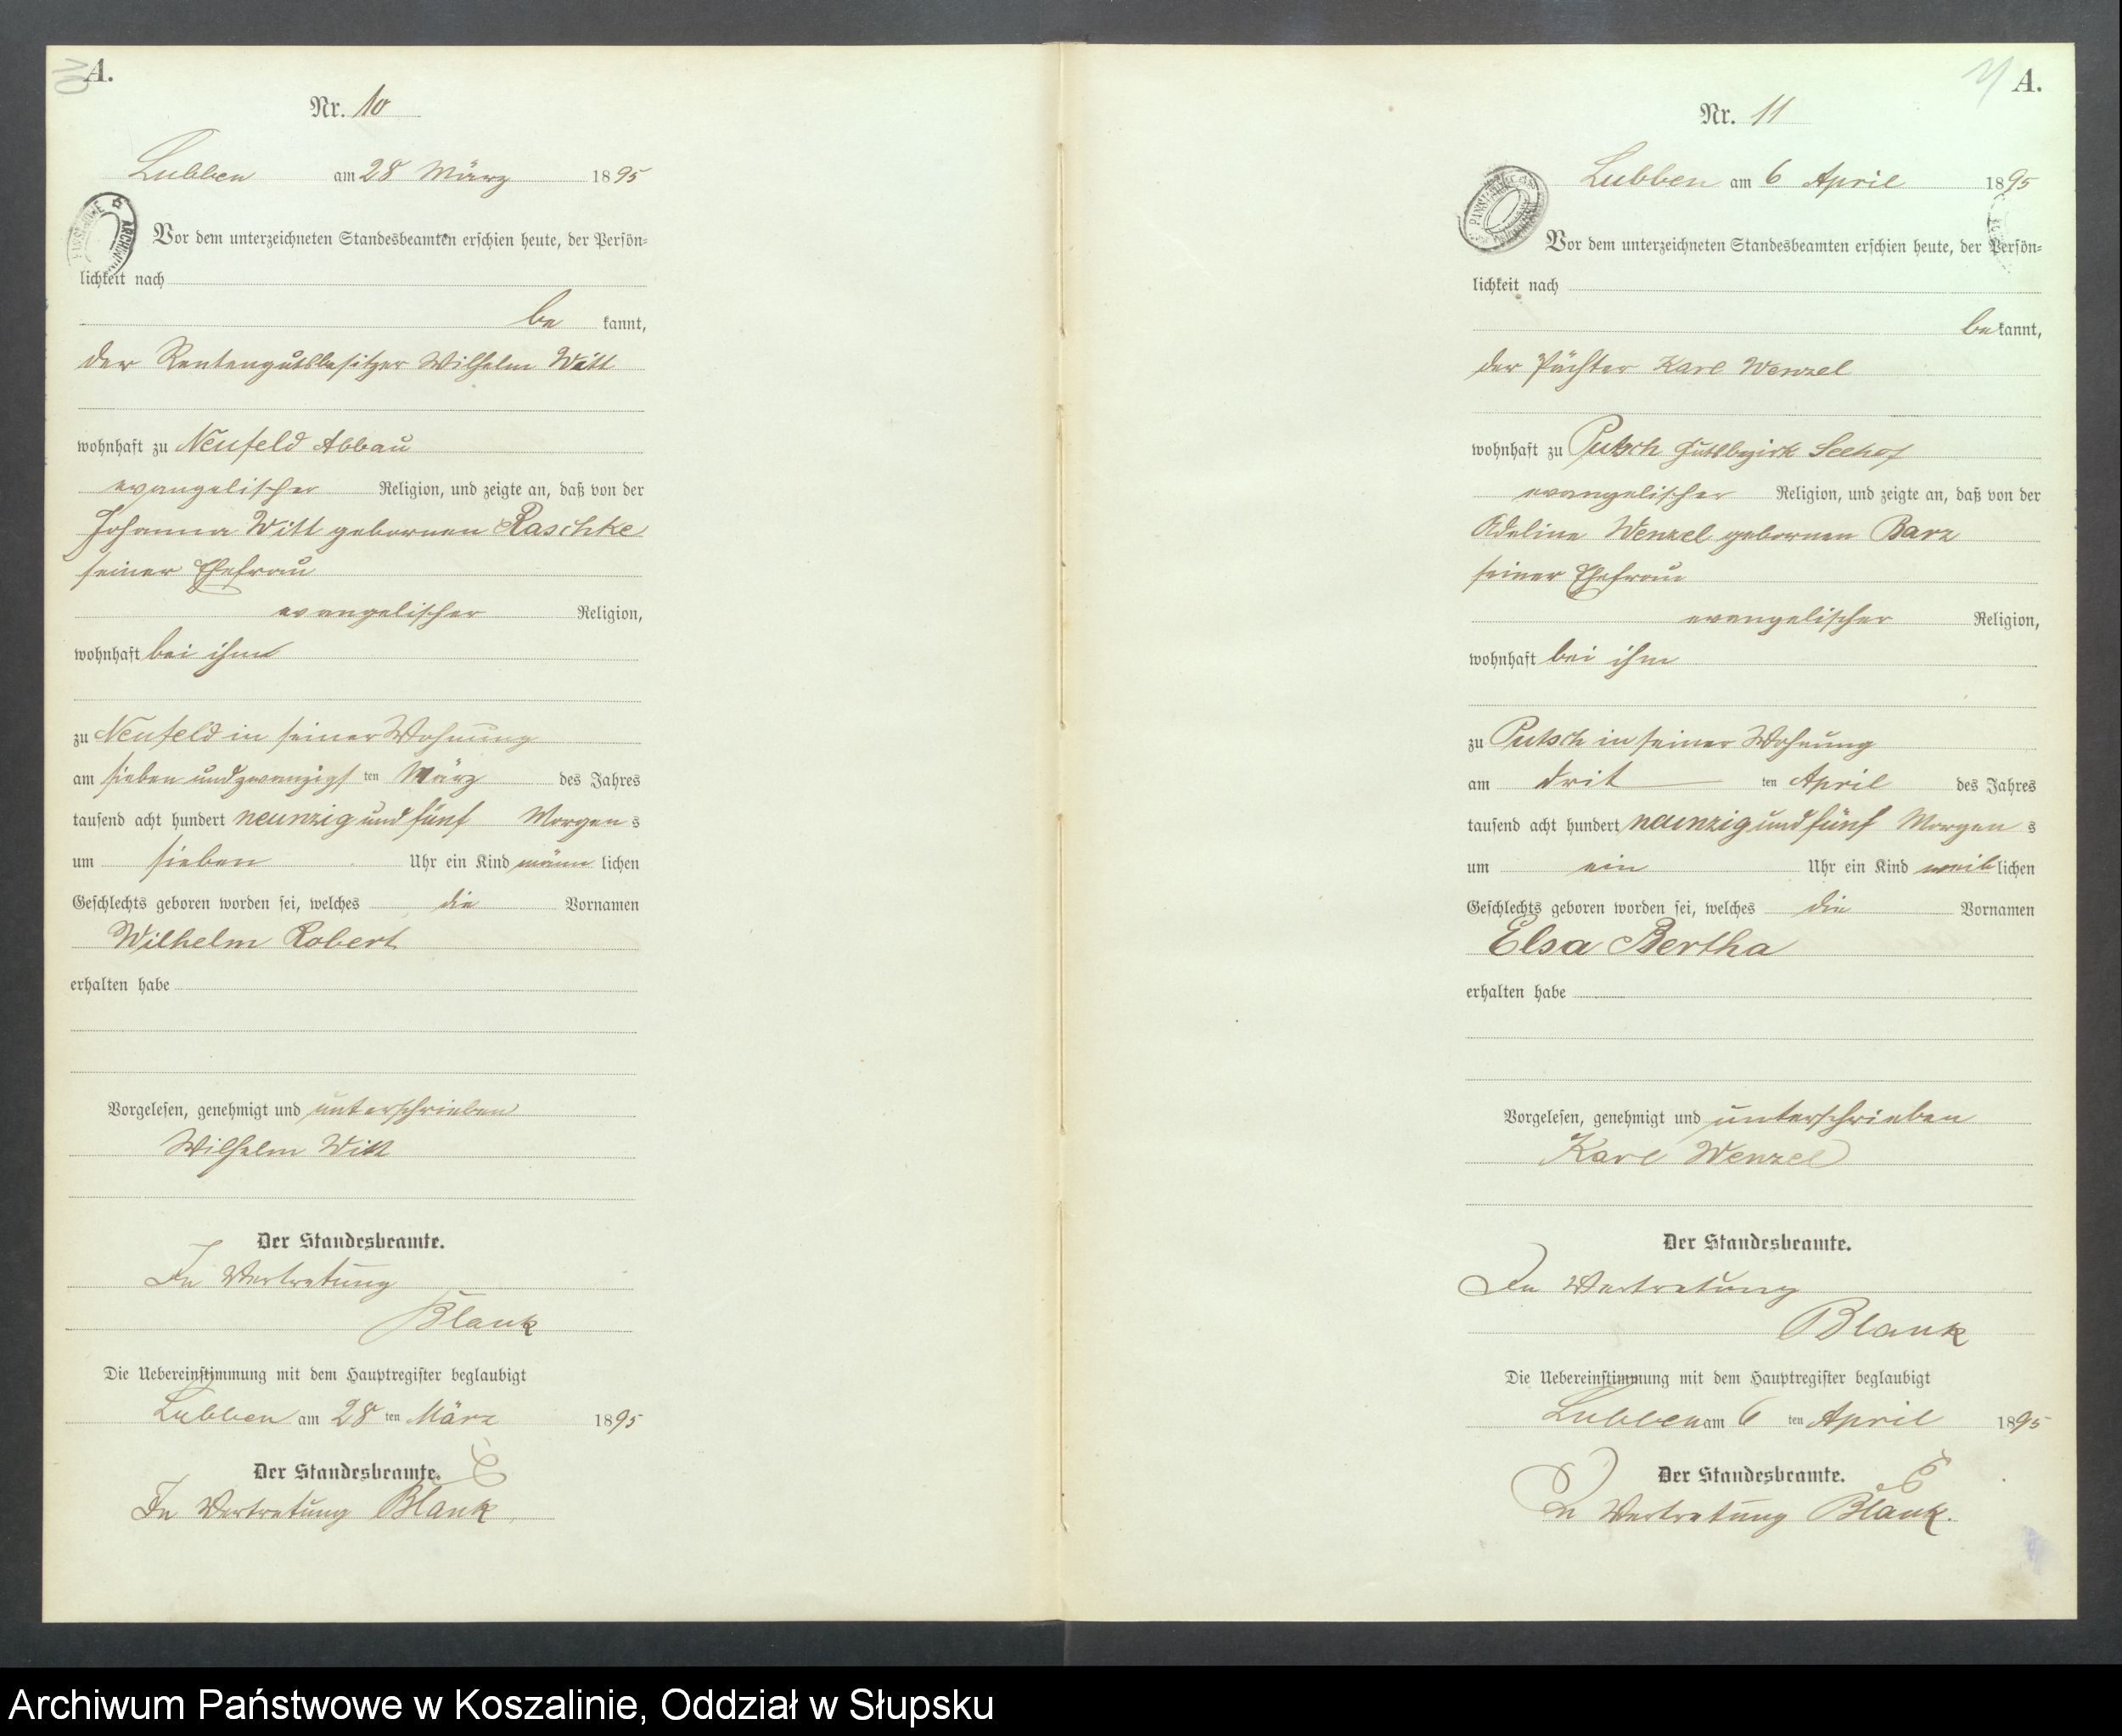 A.
Nr. 10
Lubben am 28 März 1895
Vor dem unterzeichneten Standesbeamten erschien heute, der Persön-
lichkeit nach
be kannt,
der Rentengutsbesitzer Wilhelm Witt
wohnhaft zu Neufeld Abbau
evangelischer Religion, und zeigte an, daß von der
Johanna Witt gebornen Raschke
seiner Ehefrau
evangelischer Religion,
wohnhaft bei ihm
zu Neufeld in seiner Wohnung
am sieben und zwanzigs ten März des Jahres
tausend acht hundert neunzig und fünf Morgen s
um sieben Uhr ein Kind männ lichen
Geschlechts geboren worden sei, welches die Vornamen
Wilhelm Robert
erhalten habe
Vorgelesen, genehmigt und unterschrieben
Wilhelm Witt
Der Standesbeamte.
In Vertretung
Blank
Die Uebereinstimmung mit dem Hauptregister beglaubigt
Lubben am 28 ten März 1895
Der Standesbeamte.
In Vertretung Blank
11 A.
Nr. 11
Lubben am 6 April 1895
Vor dem unterzeichneten Standesbeamten erschien heute, der Persön-
lichkeit nach
be kannt,
der Pächter Karl Wenzel
wohnhaft zu Putsch Gutsbezirk Seehof
evangelischer Religion, und zeigte an, daß von der
Adeline Wenzel gebornen Barz
seiner Ehefrau
evangelischer Religion,
wohnhaft bei ihm
zu Putsch in seiner Wohnung
am drit ten April des Jahres
tausend acht hundert neunzig und fünf Morgen s
um ein Uhr ein Kind weib lichen
Geschlechts geboren worden sei, welches die Vornamen
Elsa Bertha
erhalten habe
Vorgelesen, genehmigt und unterschrieben
Karl Wenzel
Der Standesbeamte.
In Vertretung
Blank
Die Uebereinstimmung mit dem Hauptregister beglaubigt
Lubben am 6 ten April 1895
Der Standesbeamte.
In Vertretung Blank.
Archiwum Państwowe w Koszalinie, Oddział w Słupsku